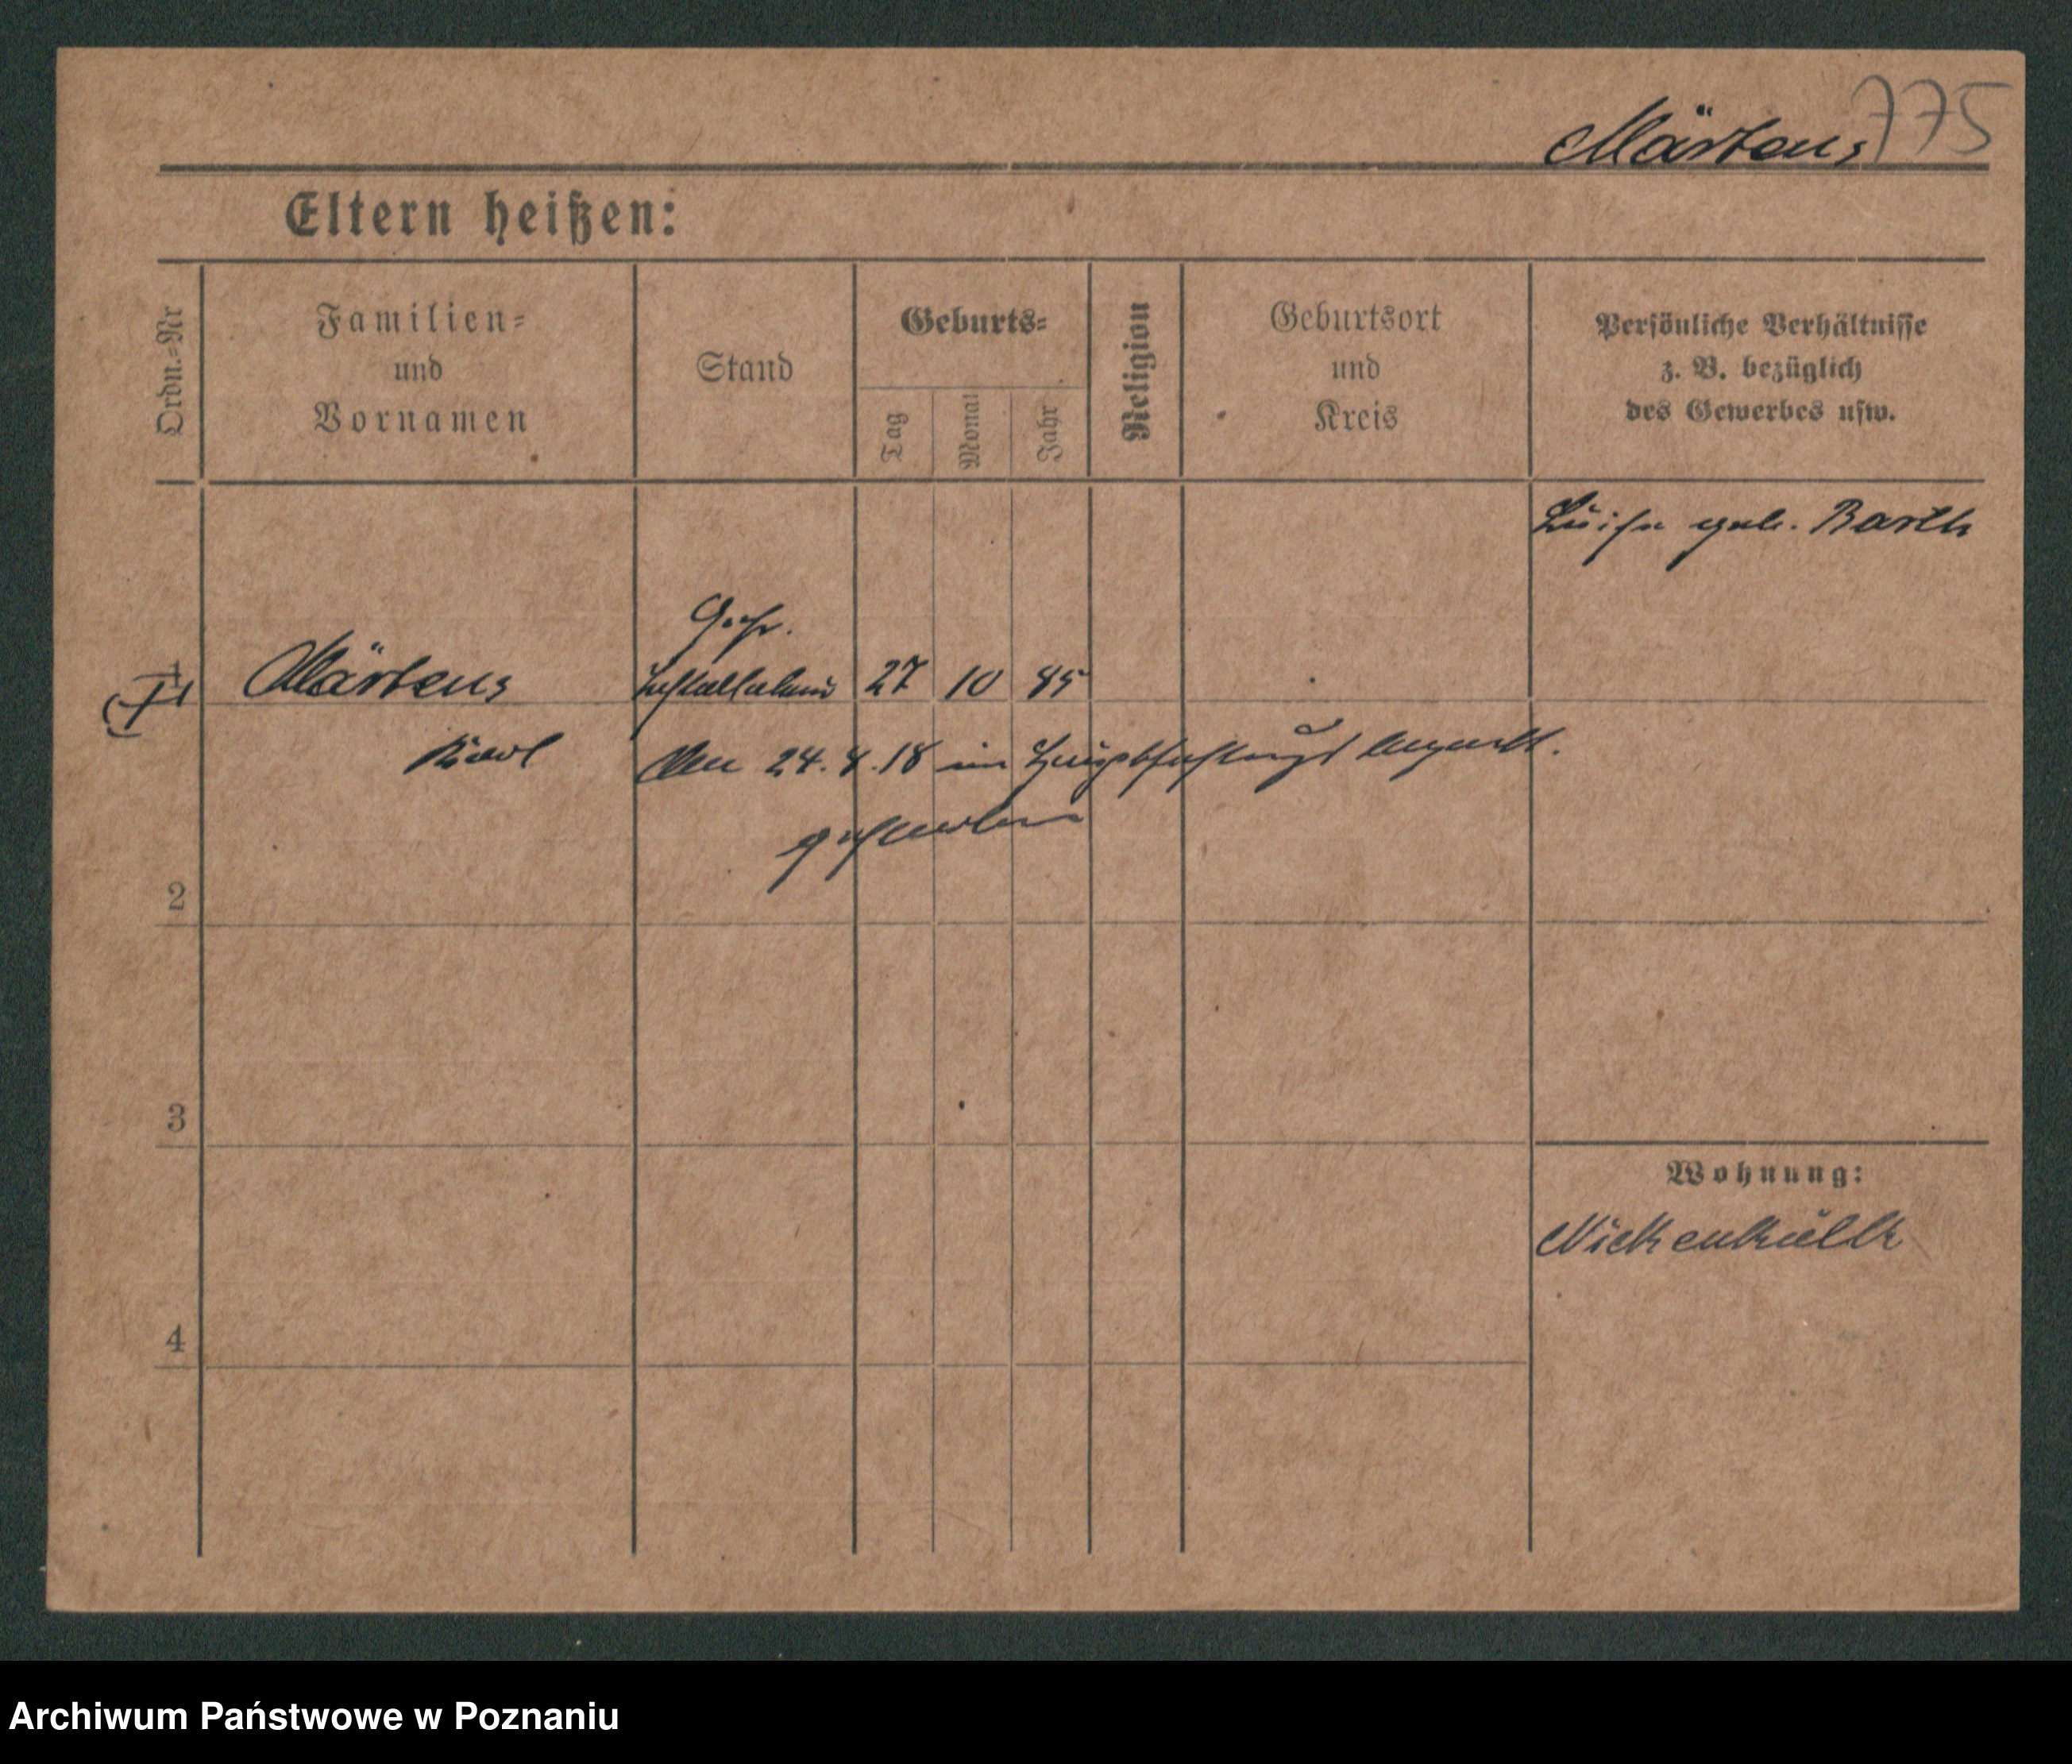 Märtens
775
Eltern heißen:
Ordn.=Nr
Familien=
und
Vornamen
Stand
Geburts=
Tag
Monat
Jahr
Religion
Geburtsort
und
Kreis
Persönliche Verhältnisse
z. B. bezüglich
des Gewerbes usw.
Luise geb. Barth
Gefr.
1 Märtens 27 10 85
Karl
24. 8. 18 im
gestorben
2
3
Wohnung:
4